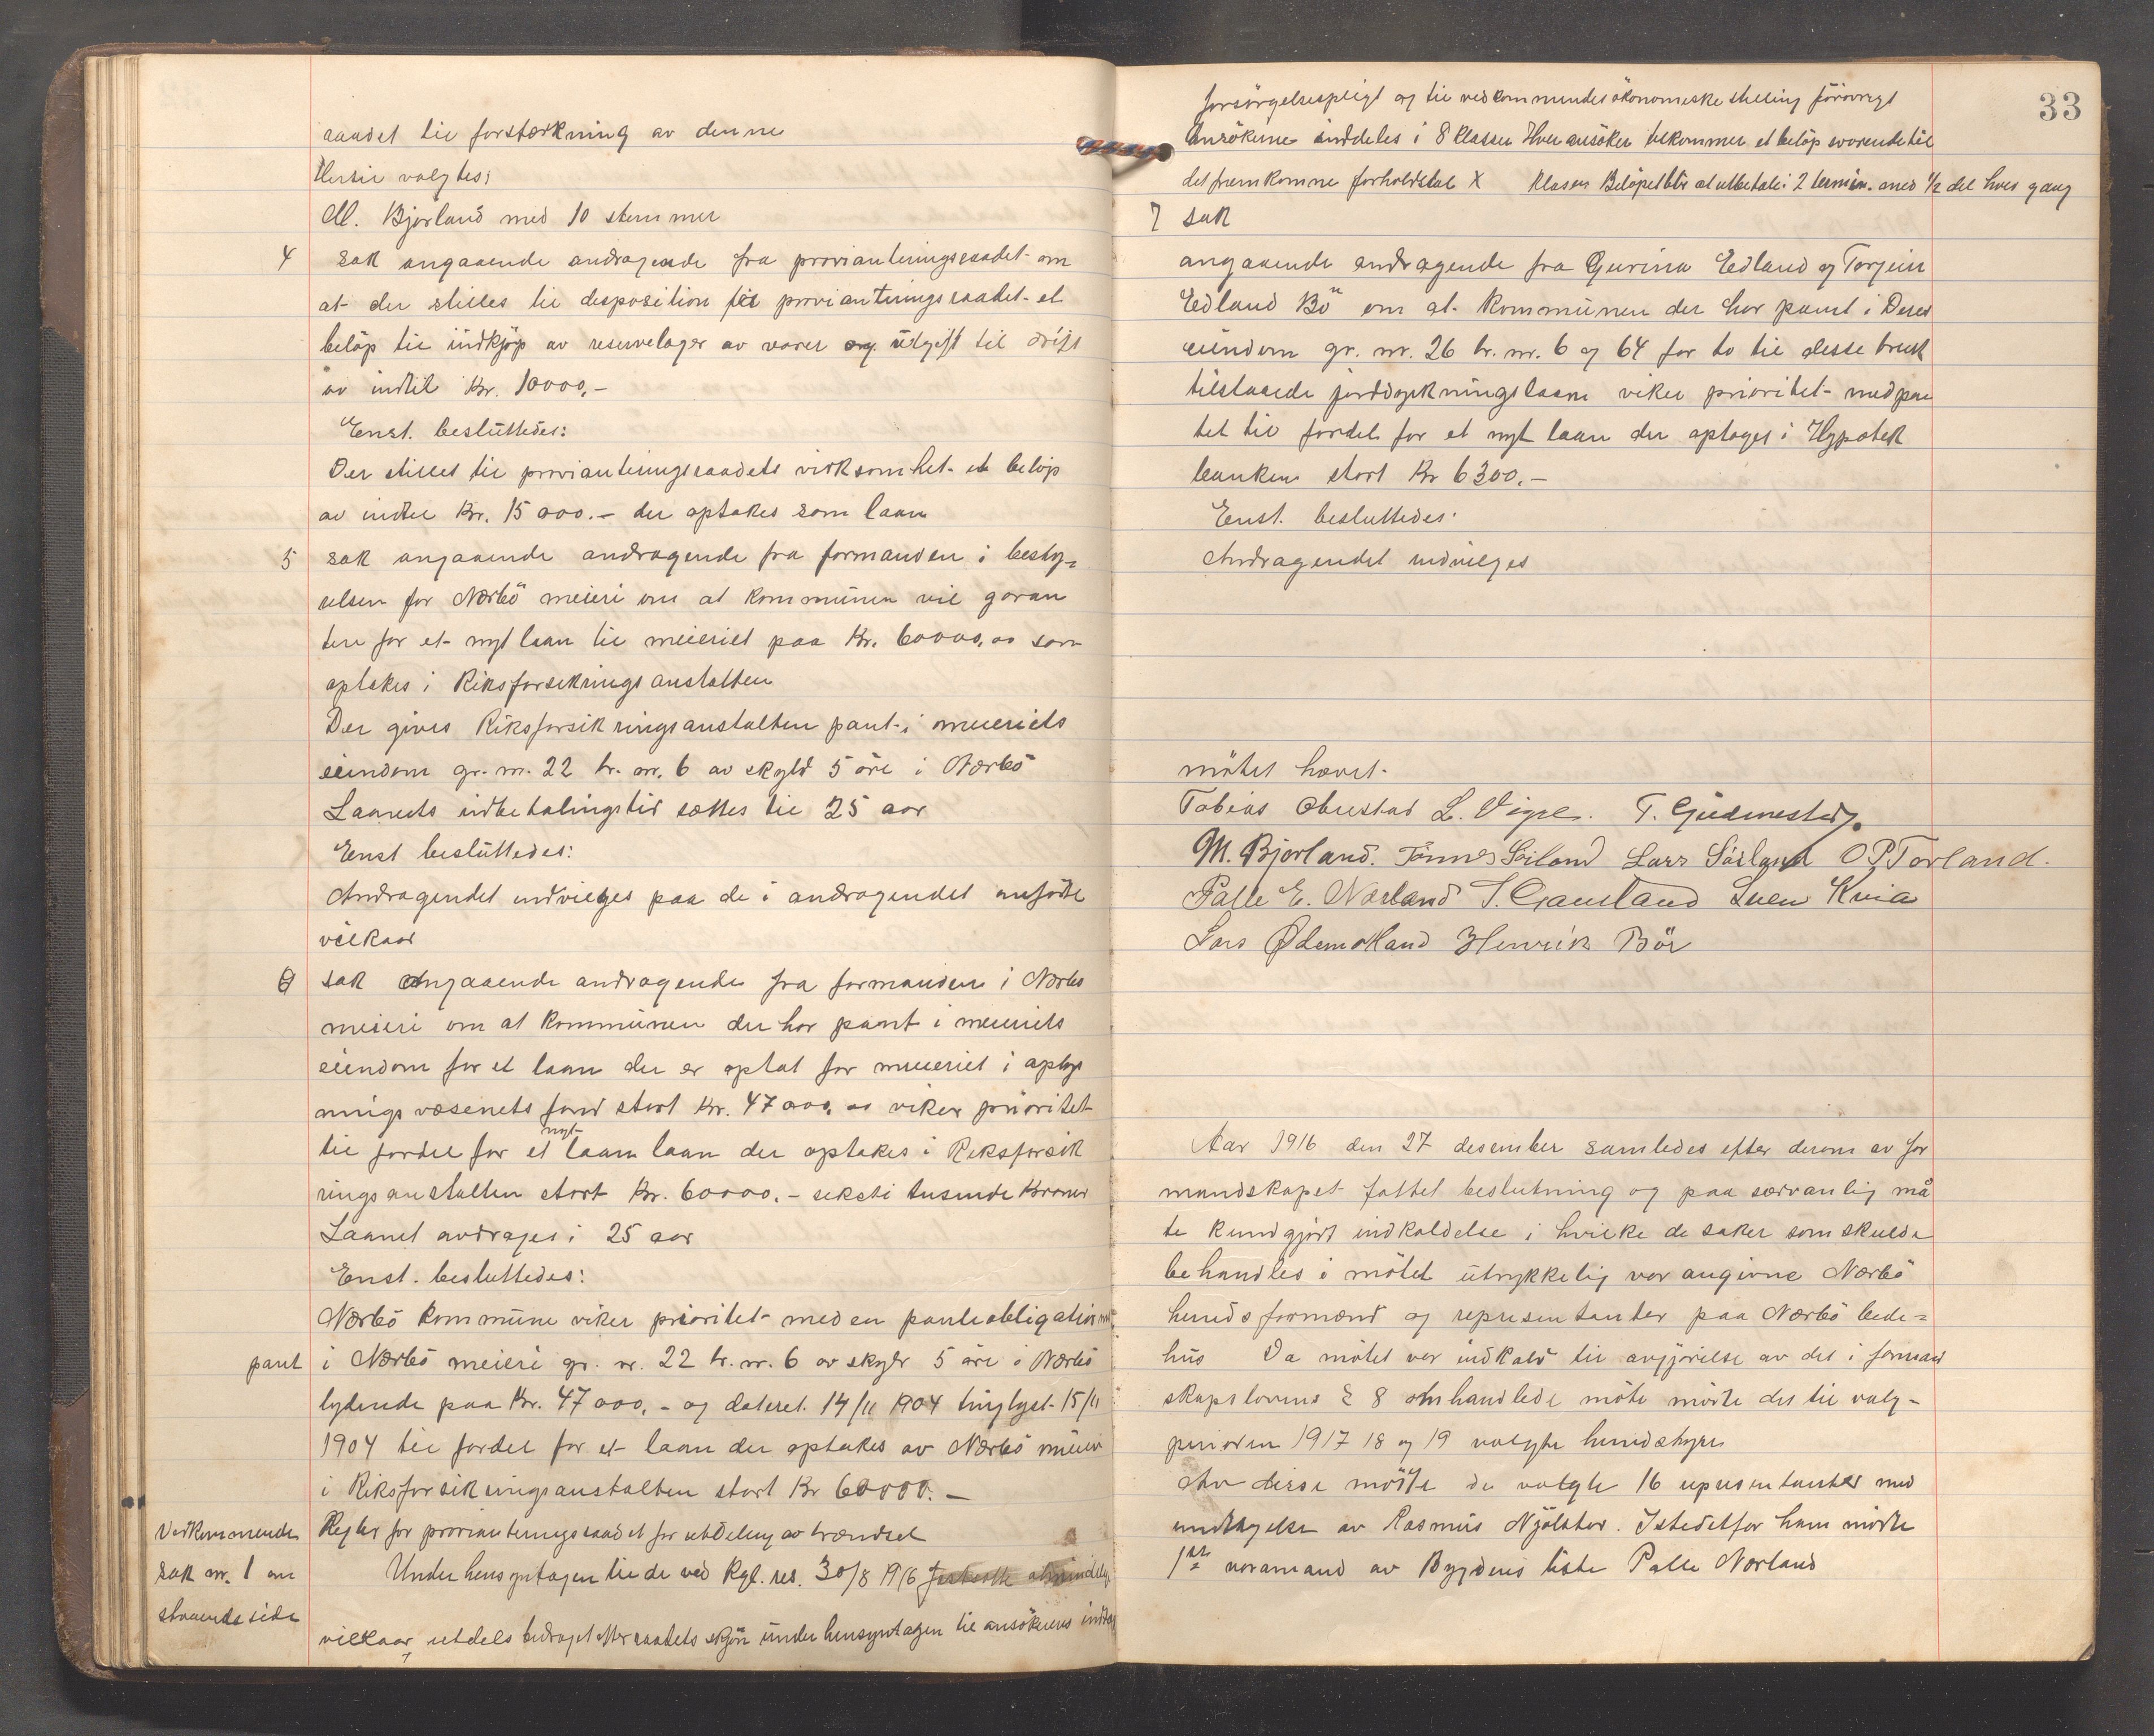 raadet til forstærkning av denne
Hertil valgtes:
M. Bjorland med 10 stemmer
4 Sak angaaende andragende fra provianteringsraadet om
at der stilles til disposition for provianteringsraadet et
beløp til indkjøp av reservelager av varer og utgift til drift
av indtil Kr. 10000,-
Enst. besluttedes:
Der stilles til provianteringsraadets virksomhet et beløp
av indtil Kr. 15 000.- der optakes som laan
5 Sak angaaende andragende fra formanden i besty=
relsen for Nærbö meieri om at kommunen vil garan
tere for et nyt laan til meieriet paa Kr. 60000,00 som
optakes i Riksforsikringsanstalten
Der gives Riksforsikringsanstalten pant i meieriets
eiendom gr. nr. 22 br. nr. 6 av skyld 5 öre i Nærbö
Laanets indbetalingstid sættes til 25 aar
Enst besluttedes:
Andragendet indvilges paa de i andragendet anførte
vilkaar
6 Sak angaaende andragende fra formanden i Nærbö
meieri om at kommunen der har pant i meieriets
eiendom for et laan der er optat for meieriet i oplys
nings væsenets fond stort Kr. 47 000,00 viker prioritet
nyt
til fordel for et laan laan der optakes i Riksforsik
ringsanstalten stort Kr. 60000.- seksti tusinde Kroner
Laanet avdrages i 25 aar
Enst. besluttedes:
Nærbö kommune viker prioritet med en panteobligation med
pant i Nærbö meieri gr. nr. 22 br. nr. 6 av skyld 5 öre i Nærbö
lydende paa Kr. 47 000,- og dateret 14/11 1904 tinglyst 15/11
1904 til fordel for et laan der optakes av Nærbö meieri
i Riksforsikringsanstalten stort Kr 60000.-
Vedkommende
sak nr. 1 om
staaende side
Regler for provianteringsraadet for utdeling av brændsel
Under hensyntagen til de ved Kgl. res. 30/8 1916 fastsatte almindelige
vilkaar utdeles bidraget efter raadets skjön under hensyntagen til ansökerens indtægt
33
forsörgelsespligt og til vedkommendes ökonomiske stilling forövrigt
Ansökerne inddeles i 8 klasser Hver ansöker tilkommer et belöp svarende til
det fremkomne forholdstal X Klasen Belöpet blir at utbetale i 2 termin. med 1/2 del hver gang
7 Sak
angaaende andragende fra Gurina Edland og Torgein
Edland Bö om at kommunen der har pant i Deres
eiendom gr. nr. 26 br. nr. 6 og 64 for to til disse bruk
tilstaaede jorddyrkningslaan viker prioritet med pan
tet til fordel for et nyt laan der optages i Hypotek
banken stort Kr 6300.-
Enst. besluttedes:
Andragendet indvilges
mötet hævet.
Tobias Obrestad L. Vigre. T. Gudmestad.
M. Bjorland. Tönnes Söiland Lars Sörland O P Torland.
Palle E. Nærland T. Grauland Sven Kvia
Lars Ødemotland Henrik Bör
Aar 1916 den 27 desember samledes efter derom av for
mandskapet fattet beslutning og paa sædvanlig må
te kundgjort indkaldelse i hvilke de saker som skulde
behandles i mötet utrykkelig var angivne Nærbö
herredsformænd og representanter paa Nærbö bede=
hus Da mötet var indkald til avgjörelse av det i formand
skapslovens § 8 omhandlede möte mötte det til valg-
perioden 1917 18 og 19 valgte herredstyre
Av disse mötte de valgte 16 representanter med
undtagelse av Rasmus Njölstad. Istedetfor ham mötte
1ste varamand av Bygdens liste Palle Nærland